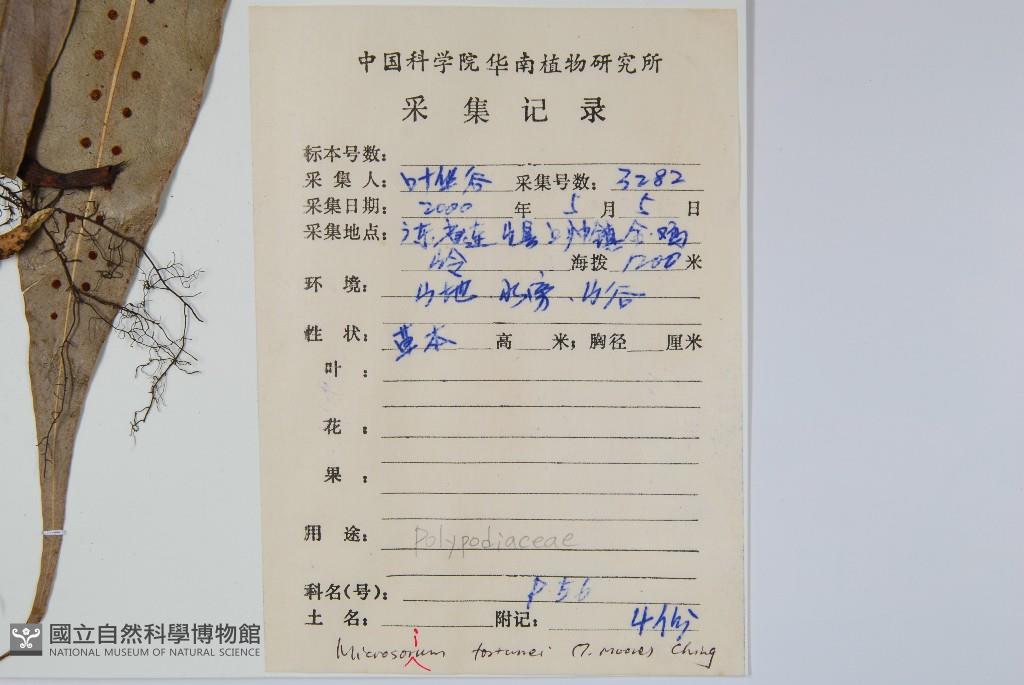 中国科学院华南植物研究所
采集记录
标本号数：
采集人：叶华谷 采集号数：3282
采集日期：2000年5月5日
采集地点：广东省连山县上帅镇金鸡
岭 海拨1200米
环境：山地 水旁、山谷
性状：草本 高 米；胸径 厘米
叶：
花：
果：
用途：
Polypodiaceae
科名(号)：P56
土名： 附记：4份
Microsorium fortunei (T. Moore) Ching
國立自然科學博物館
NATIONAL MUSEUM OF NATURAL SCIENCE